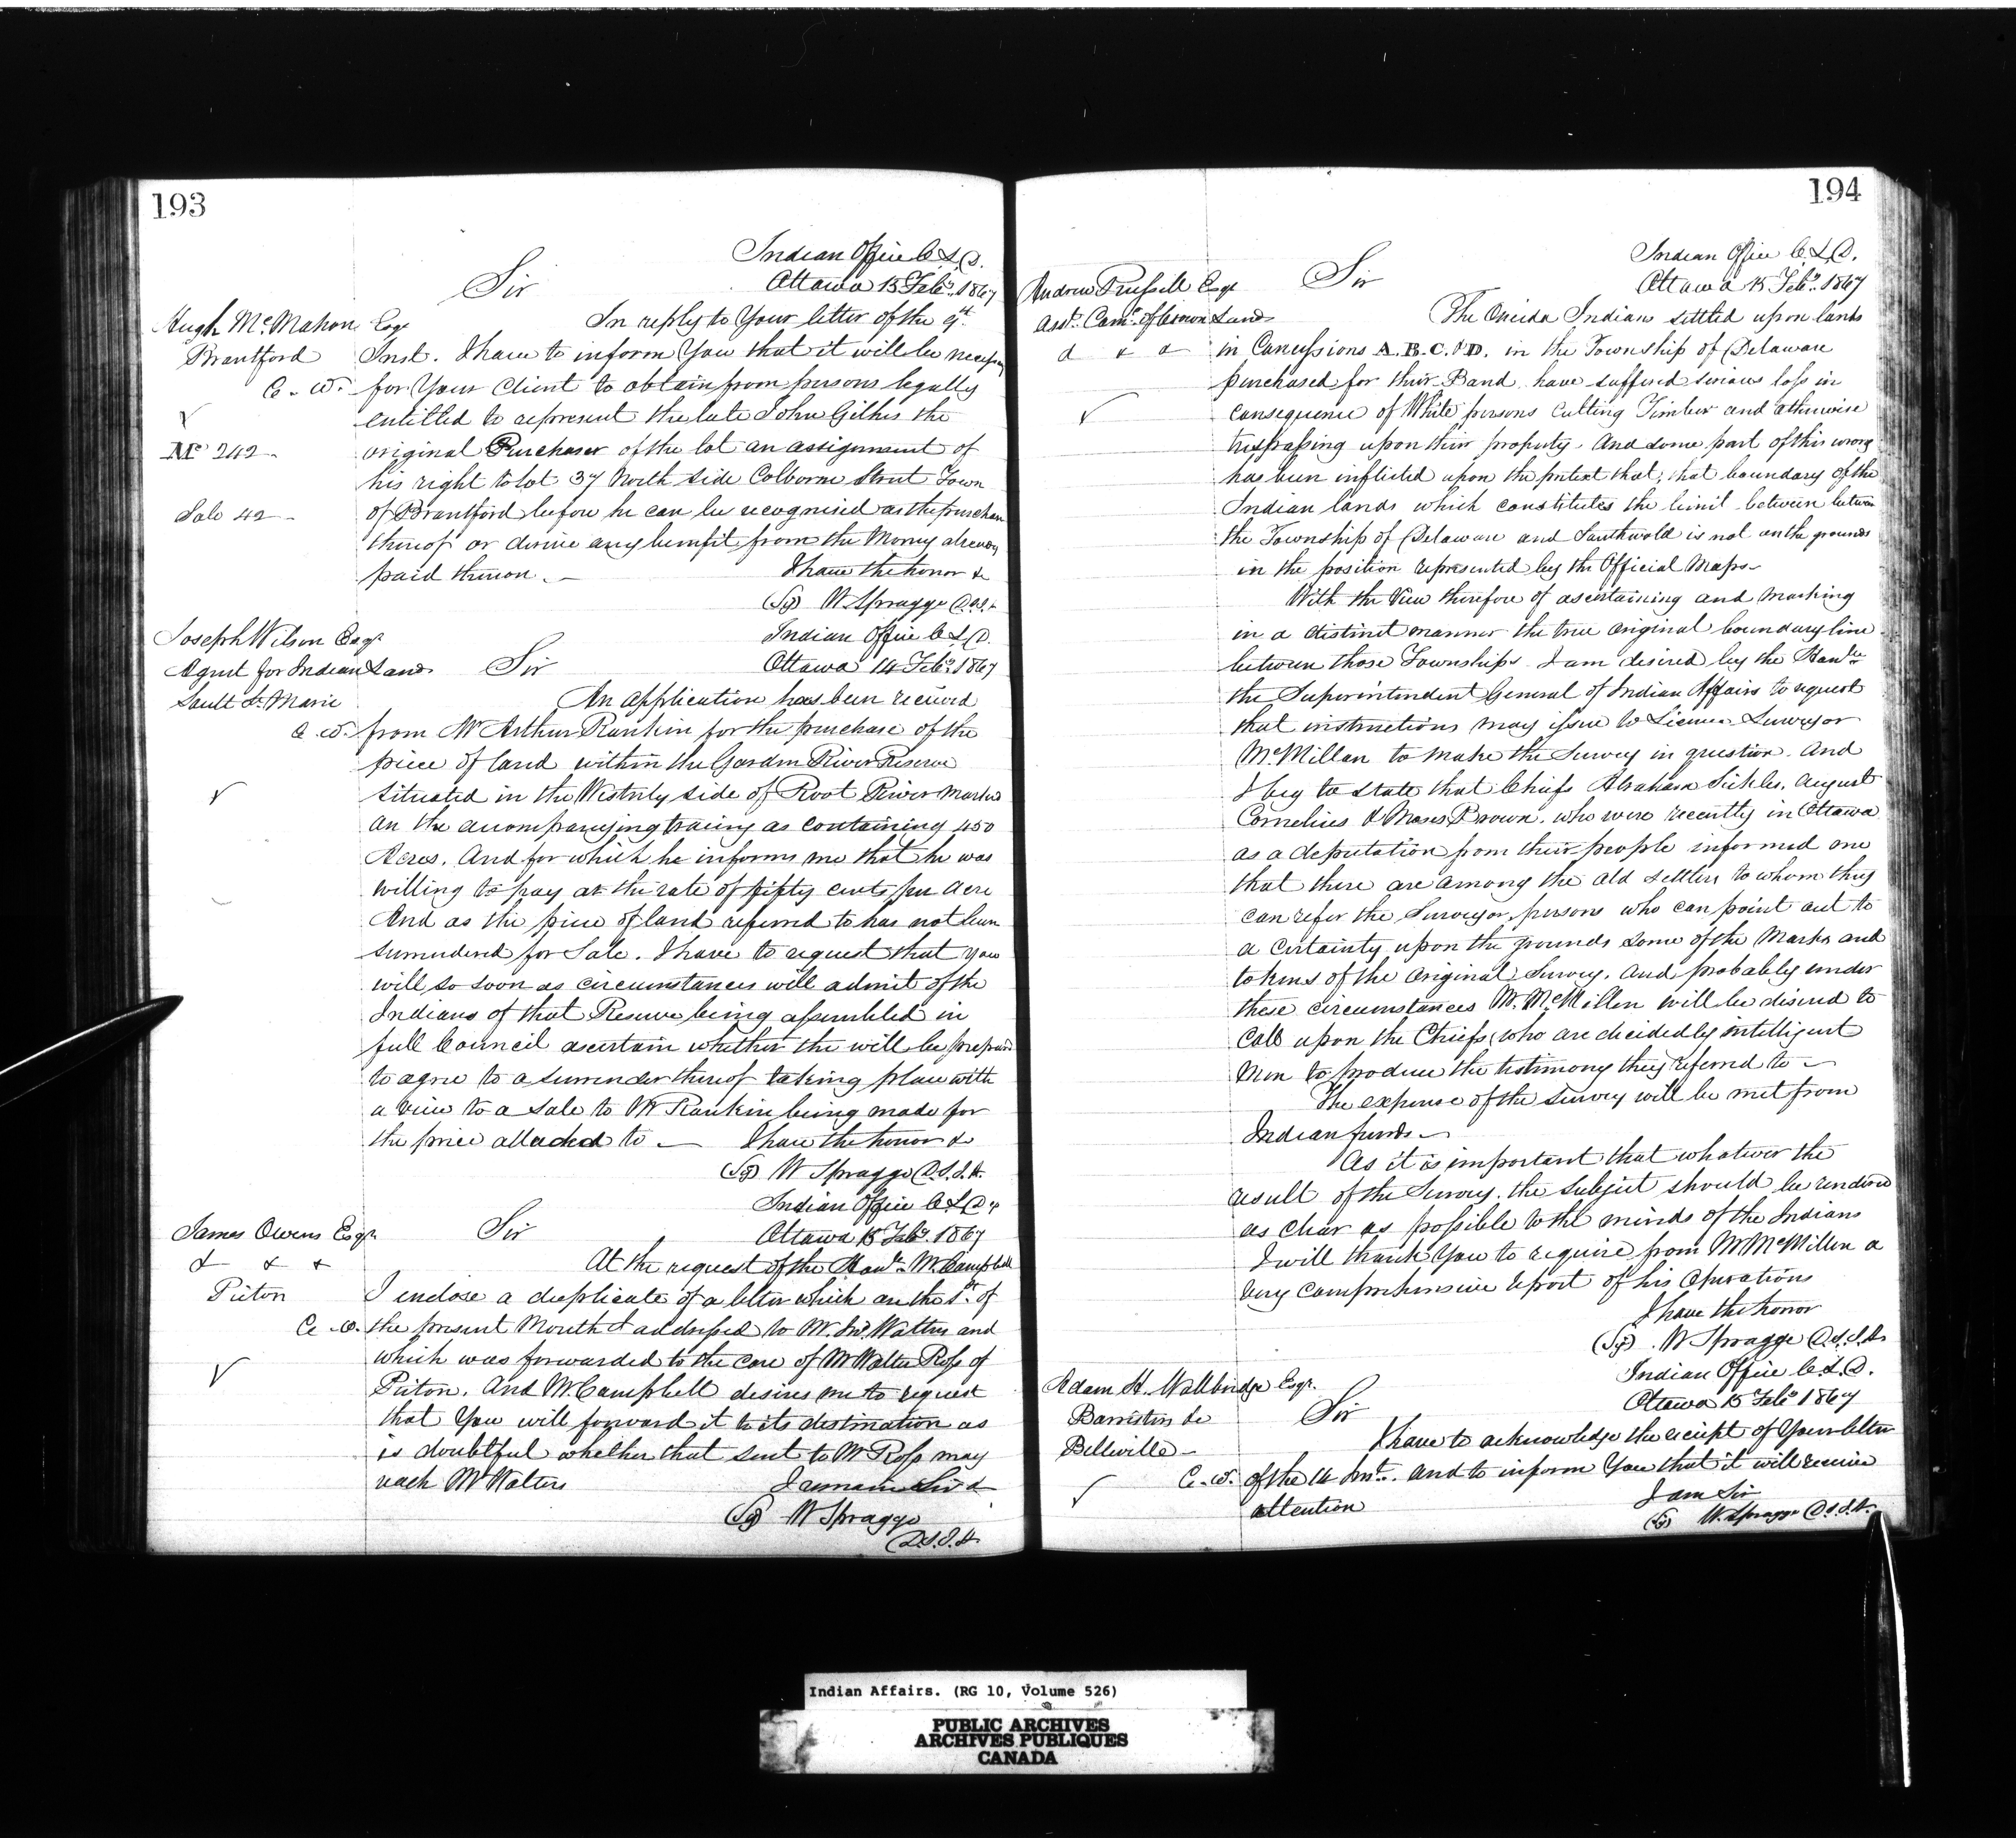 193
Indian Office C.L.D.
Sir
Ottawa 15 Feby. 1867
Hugh McMahon Esqr
In reply to Your letter of the 9th
Brantford
Inst. I have to inform You that it will be necessary
C. W.
for Your Client to obtain from persons legally
entitled to represent the late John Gilkis the
Mc 242
original Purchaser of the lot an assignment of
his right to lot 37 North side Colborne Street Town
Sale 42
of Brantford before he can be recognised as the purchaser
thereof or derive any benefit from the Money already
paid thereon.
I have the honor &c
(Sg) W Spragge D.S.I.A.
Joseph Wilson Esqr
Indian Office C.L.D.
Agent for Indian Lands
Sir
Ottawa 14 Feby. 1867
Sault St. Marie
An application has been received
C. W.
from Mr Arthur Rankin for the purchase of the
piece of land within the Garden River Reserve
situated in the Westerly side of Root River marked
on the accompanying tracing as containing 450
Acres. And for which he informs me that he was
willing to pay at the rate of fifty cents per acre
And as the piece of land referred to has not been
surrendered for Sale. I have to request that you
will so soon as circumstances will admit of the
Indians of that Reserve being assembled in
full Council ascertain whether the will be prepared
to agree to a surrender thereof taking place with
a view to a sale to Mr Rankin being made for
the price alluded to
I have the honor &c
(Sg) W Spragge D.S.I.A.
Indian Office C.L.D.
James Owens Esqr
Sir
Ottawa 15 Feby. 1867
& & &
At the request of the Honble. Mr. Campbell
Picton
I enclose a duplicate of a letter which on the 1st. of
C. W.
the present Month I addressed to Mr. Jno. Walters and
which was forwarded to the care of Mr Walter Ross of
Picton. And Mr. Campbell desires me to request
that You will forward it to its destination as
is doubtful whether that sent to Mr Ross may
reach Mr Walters
I remain Sir &
(Sg) W Spragge
D.S.I.A.
194
Indian Office C.L.D.
Andrew Russell Esqr
Sir
Ottawa 15 Feby. 1867
Asst. Comr. of Crown Lands
The Oneida Indians settled upon lands
& & &
in Concessions A. B. C. & D. in the Township of Delaware
purchased for their Band have suffered serious loss in
consequence of White persons cutting Timber and otherwise
trespassing upon their property. And some part of this wrong
has been inflicted upon the pretext that, that boundary of the
Indian lands which constitutes the limit between between
the Township of Delaware and Southwold is not on the grounds
in the position represented by the Official Maps
With the View therefore of ascertaining and marking
in a distinct manner the true original boundary line
between those Townships I am desired by the Honble
the Superintendent General of Indian Affairs to request
that instructions may issue to License Surveyor
McMillan to make the Survey in question. And
I beg to state that Chiefs Abraham Sickles, August
Cornelius & Moses Brown. who were recently in Ottawa
as a deputation from their people informed me
that there are among the old settlers to whom they
can refer the Surveyor, persons who can point out to
a certainty upon the grounds some of the Marks and
tokens of the original Survey. And probably under
these circumstances Mr. McMillen will be desired to
Call upon the Chiefs, who are decidedly intelligent
Men to produce the testimony they referred to
The expense of the survey will be met from
Indian funds
As it is important that whatever the
result of the Survey. the subject should be rendered
as clear as possible to the minds of the Indians
I will thank You to require from Mr McMillen a
very comprehensive report of his Operations
I have the honor
(Sg) W Spragge D.S.I.A.
Indian Office C.L.D.
Adam H. Wallbridge Esqr.
Ottawa 15 Feby 1867
Barrister &c
Sir
Belleville
I have to acknowledge the receipt of Your letter
C. W.
of the 14 Inst. and to inform You that it will receive
attention
I am Sir
(Sg) W. Spragge D.S.I.A.
Indian Affairs. (RG 10, Volume 526)
PUBLIC ARCHIVES
ARCHIVES PUBLIQUES
CANADA